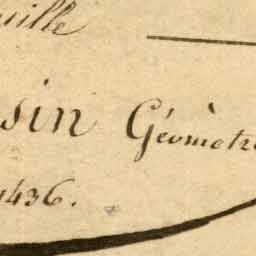 uille
sin Géomètre
1436.